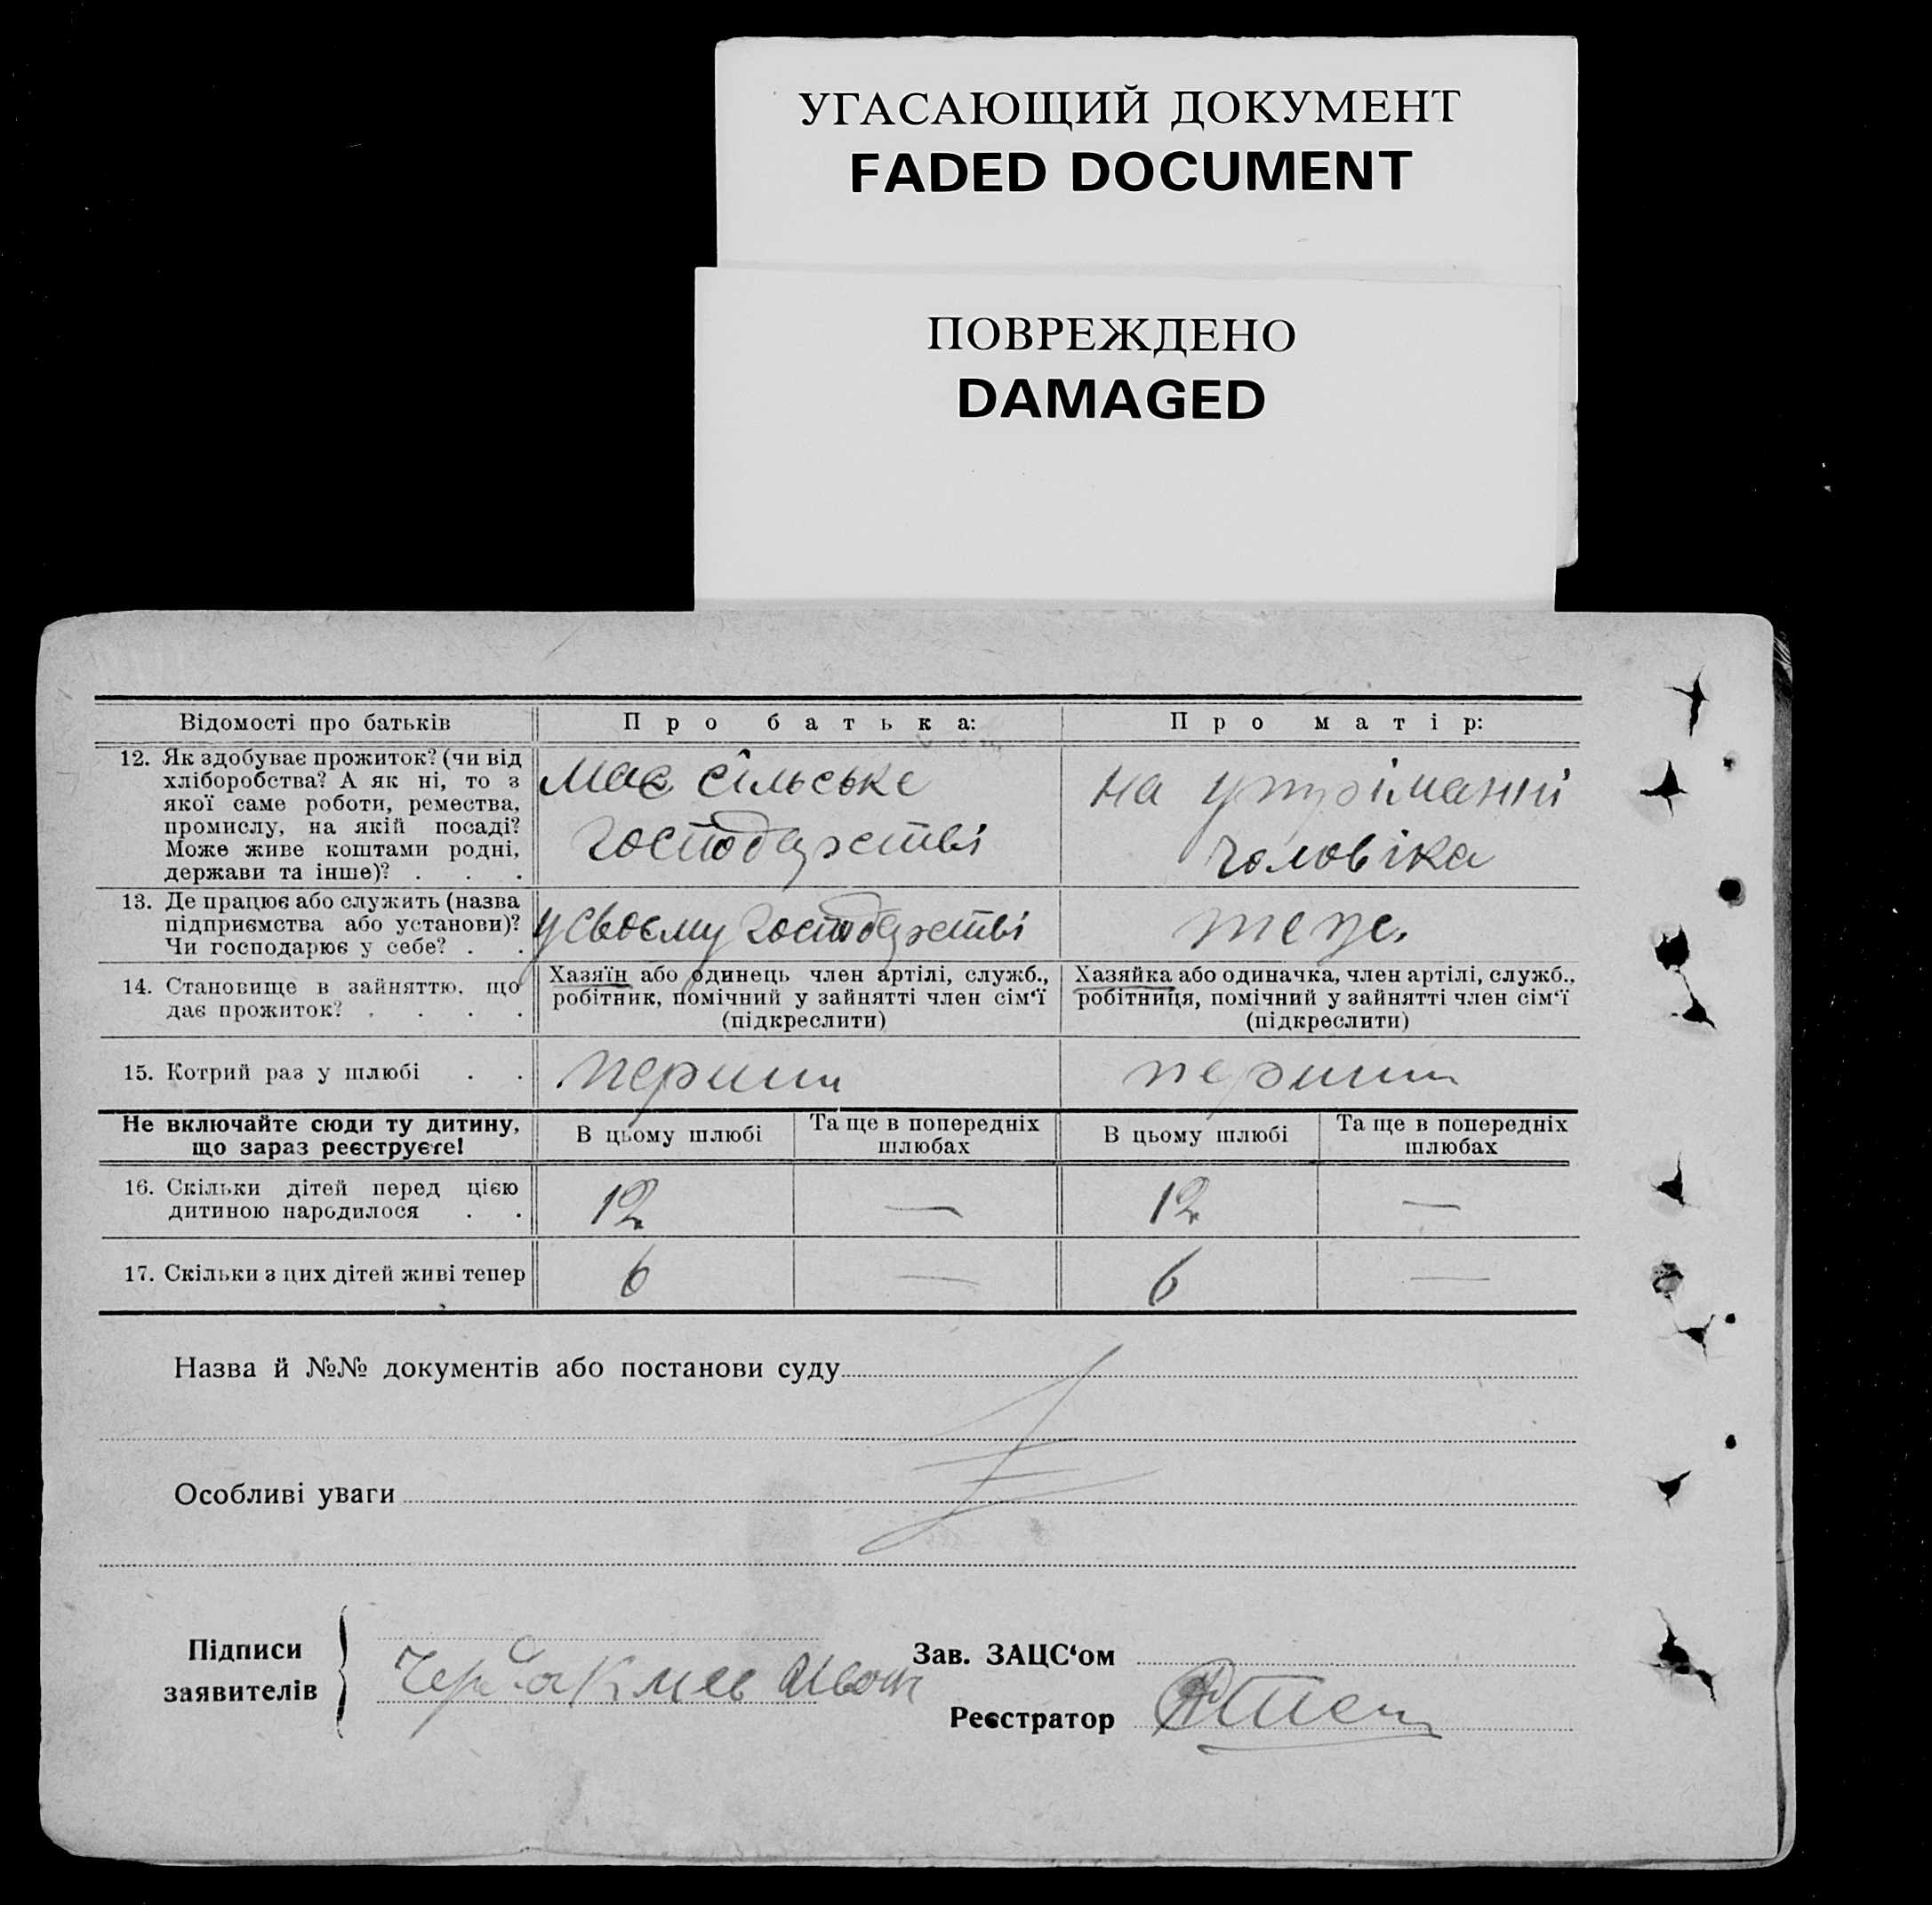 УГАСАЮЩИЙ ДОКУМЕНТ
FADED DOCUMENT
ПОВРЕЖДЕНО
DAMAGED
Відомості про батьків
Про батька:
Про матір:
12. Як здобуває прожиток? (чи від
хліборобства? А як ні, то з
якої саме роботи, ремества,
промислу, на якій посаді?
Може живе коштами родні,
держави та інше)? . . .
має сільське
господарстві
на утриманні
чоловіка
13. Де працює або служить (назва
підприємства або установи)?
Чи господарює у себе? . .
у своєму господарстві
теж.
14. Становище в зайняттю, що
дає прожиток? . . . .
Хазяїн або одинець член артілі, служб.,
робітник, помічний у зайнятті член сім'ї
(підкреслити)
Хазяйка або одиначка, член артілі, служб.,
робітниця, помічний у зайнятті член сім'ї
(підкреслити)
15. Котрий раз у шлюбі . .
перший
перший
Не включайте сюди ту дитину,
що зараз реєструєте!
В цьому шлюбі
Та ще в попередніх
шлюбах
В цьому шлюбі
Та ще в попередніх
шлюбах
16. Скільки дітей перед цією
дитиною народилося . .
12
—
12
—
17. Скільки з цих дітей живі тепер
6
—
6
—
Назва й №№ документів або постанови суду
Особливі уваги
Підписи
заявителів
Зав. ЗАЦС'ом
Реєстратор